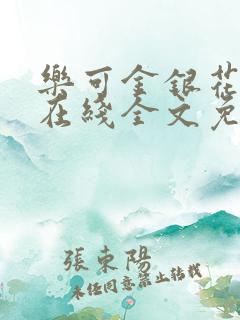 樂可金銀花
在綫全文免
張東陽
未任同意禁止轉載